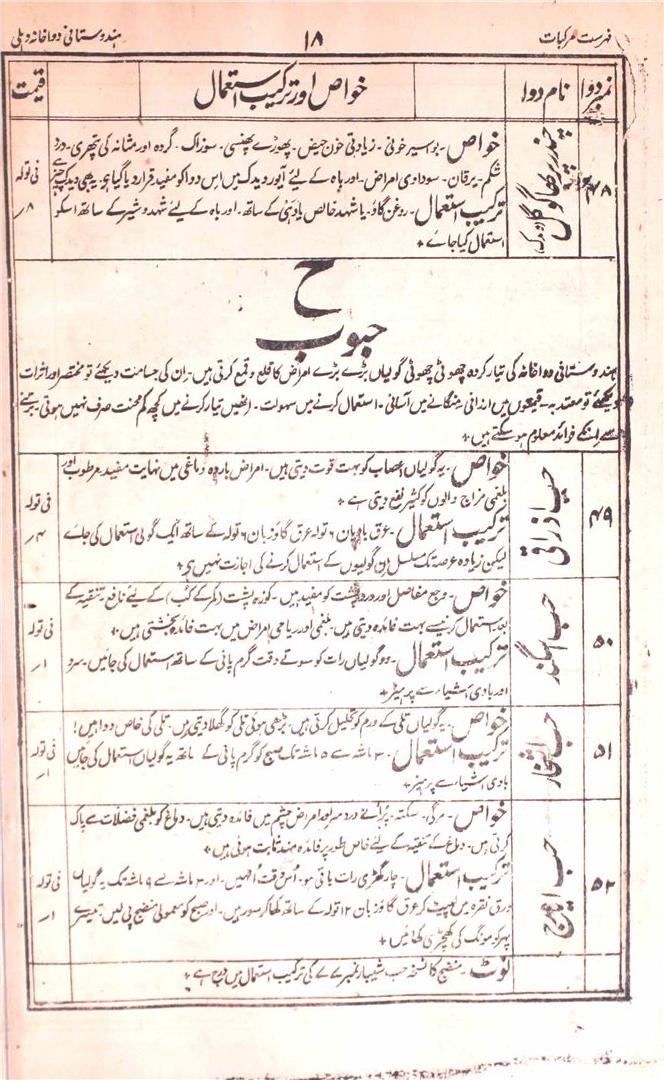 فہرست مرکبات
۱۸
ہندوستانی دواخانہ دہلی
نمبر دوا
نام دوا
خواص اور ترکیب استعمال
قیمت
۴۸
چندر پربھا گوگل
خواص۔ بواسیر خونی۔ زیادتی خون حیض۔ پھوڑے پھنسی۔ سوزاک۔ گردہ اور مثانہ کی پتھری۔ درد
شکم۔ یرقان۔ سوداوی امراض۔ اور باہ کے لیئے آیورویدک میں اس دوا کو مفید قرار دیا گیا ہے۔ یہ بھی ویدک
ترکیب استعمال۔ روغن گاؤ۔ یا شہد خالص یا دہی کے ساتھ۔ اور باہ کے لیئے شہد و شیر کے ساتھ اسکو
استعمال کیا جائے ٭
فی تولہ
۸ر
ح
حبوب
ہندوستانی دواخانہ کی تیار کردہ چھوٹی چھوٹی گولیاں بڑے بڑے امراض کا قلع و قمع کرتی ہیں۔ ان کی جسامت دیکھئے تو مختصر اور اثرات
دیکھئے تو معتدبہ۔ قیمتوں میں ارزانی منگانے میں آسانی۔ استعمال کرنے میں سہولت۔ انھیں تیار کرنے میں کچھ کم محنت صرف نہیں ہوتی برتنے
سے انکے فوائد معلوم ہوسکتے ہیں ٭
۴۹
حب اذراقی
خواص۔ یہ گولیاں اعصاب کو بہت قوت دیتی ہیں۔ امراض باردہ دماغی میں نہایت مفید۔ مرطوب اور
بلغمی مزاج والوں کو کثیر نفع دیتی ہے ٭
ترکیب استعمال۔ عرق بادیان ۶ تولہ عرق گاؤزبان ۶ تولہ کے ساتھ ایک گولی استعمال کی جائے
لیکن زیادہ عرصہ تک مسلسل ان گولیوں کے استعمال کرنے کی اجازت نہیں ہے ٭
فی تولہ
۴ر
۵۰
حب اسگند
خواص۔ وجع مفاصل اور درد پشت کو مفید ہیں۔ کوزہ پشت (کمر کے کُب) کے لیئے نافع۔ تنقیہ کے
بعد استعمال کرنیسے بہت فائدہ دیتی ہیں۔ بلغمی اور ریاحی امراض میں بہت فائدہ بخشتی ہیں ٭
ترکیب استعمال۔ دو گولیاں رات کو سوتے وقت گرم پانی کے ساتھ استعمال کی جائیں۔ سرد
اور بادی اشیاء سے پرہیز ٭
فی تولہ
۱ر
۵۱
حب اشخار
خواص۔ یہ گولیاں تلی کے ورم کو تحلیل کرتی ہیں۔ بڑھی ہوئی تلی کو گھلا دیتی ہیں۔ تلی کی خاص دوا ہیں!
ترکیب استعمال۔ ۳ ماشہ سے ۵ ماشہ تک صبح کو گرم پانی کے ساتھ یہ گولیاں استعمال کی جائیں
بادی اشیاء سے پرہیز ٭
فی تولہ
۱ر
۵۲
حب ایارج
خواص۔ مرگی۔ سکتہ۔ پُرانے درد سر اور امراض چشم میں فائدہ دیتی ہیں۔ دماغ کو بلغمی فضلات سے پاک
کرتی ہیں۔ دماغ کے تنقیہ کے لیئے خاص طور پر فائدہ مند ثابت ہوئی ہیں ٭
ترکیب استعمال۔ چار گھڑی رات باقی ہو۔ اُس وقت اُٹھیں۔ اور ۳ ماشہ سے ۹ ماشہ تک یہ گولیاں
ورق نقرہ میں لپیٹ کر عرق گاؤزبان ۱۲ تولہ کے ساتھ کھا کر سو رہیں۔ اور صبح کو معمولی منضج پی لیں۔ تیسرے
پہر کو مونگ کی کھچڑی کھائیں ٭
فی تولہ
۱ر
نوٹ۔ منضج کا نسخہ حب شبیار نمبر ۷۷ کی ترکیب استعمال میں درج ہے ٭